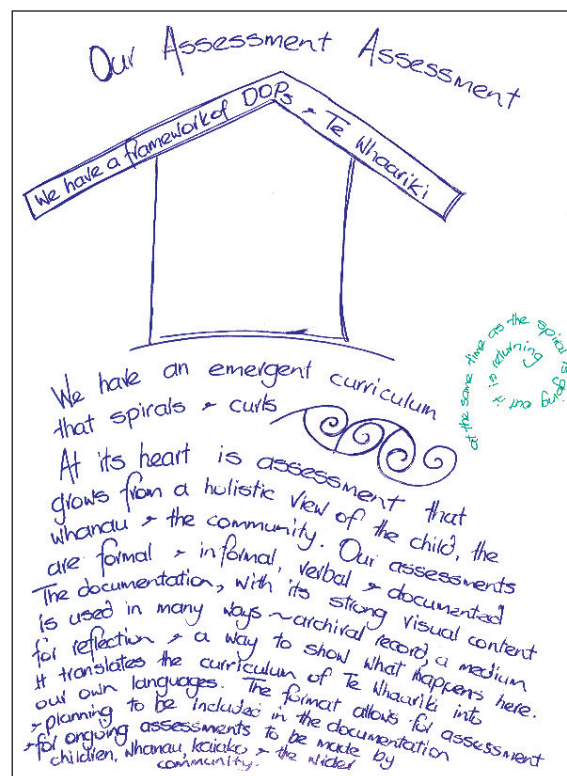 Our Assessment Assessment
We have a framework of DOPs + Te Whaariki
We have an emergent curriculum
that spirals + curls
at the same time as the spiral is going out it is returning
At its heart is assessment that
grows from a holistic view of the child, the
whanau + the community. Our assessments
are formal + informal, verbal + documented
The documentation, with its strong visual content
is used in many ways ~ archival record, a medium
for reflection + a way to show what happens here.
It translates the curriculum of Te Whaariki into
our own languages. The format allows for assessment
+ planning to be included in the documentation
+ for ongoing assessments to be made by
children, whanau, kaiako + the wider
community.